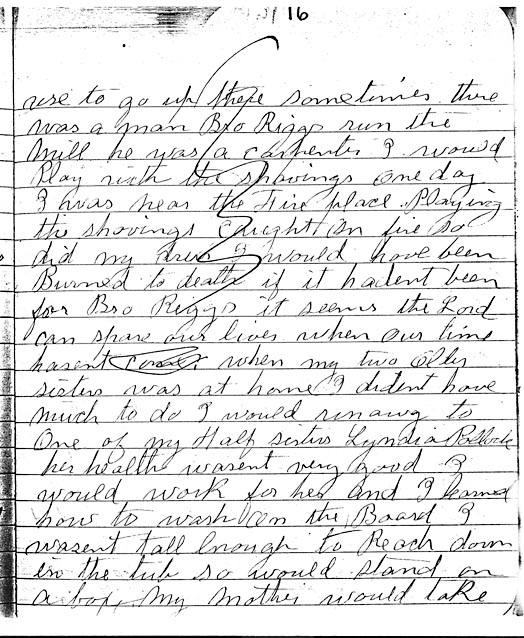 16
use to go up there sometimes there
was a man Bro Riggs run the
mill he was a carpenter I would
Play with the shavings one day
I was near the Fire place. Playing
the shavings caught on fire so
did my dress I would have been
Burned to death if it hadent been
for Bro Riggs it seems the Lord
can spare our lives when our time
hasent come. when my two older
sisters was at home I dident have
much to do I would runawy to
One of my Half sisters Lyndia Pollock
her health wasent very good I
would work for her and I learned
how to wash on the Board I
wasent tall Enough to Reach down
in the tub so would stand on
a box, My Mother would take